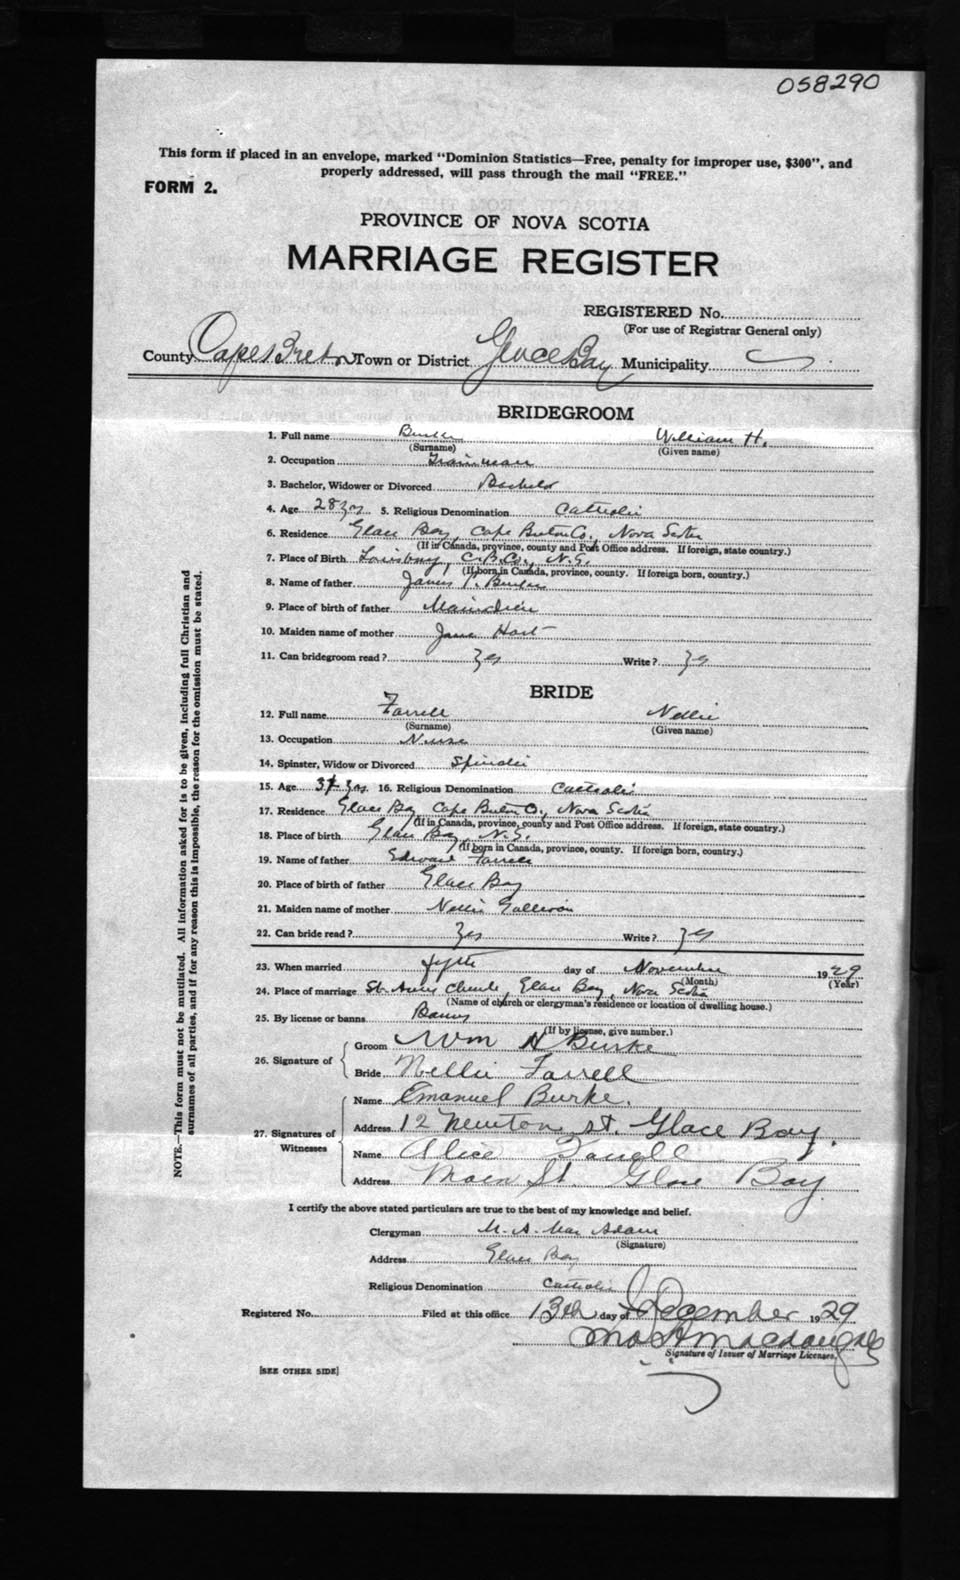 058290
This form if placed in an envelope, marked "Dominion Statistics—Free, penalty for improper use, $300", and
properly addressed, will pass through the mail "FREE."
FORM 2.
PROVINCE OF NOVA SCOTIA
MARRIAGE REGISTER
REGISTERED No.
(For use of Registrar General only)
County Cape Breton Town or District Glace Bay Municipality
BRIDEGROOM
1. Full name Burke William H.
(Surname) (Given name)
2. Occupation Trainman
3. Bachelor, Widower or Divorced Bachelor
4. Age 28 yrs 5. Religious Denomination Catholic
6. Residence Glace Bay, Cape Breton Co, Nova Scotia
(If in Canada, province, county and Post Office address. If foreign, state country.)
7. Place of Birth Louisburg, C.B.Co., N.S.
(If born in Canada, province, county. If foreign born, country.)
8. Name of father James Burke
9. Place of birth of father Mainadieu
10. Maiden name of mother Jane Hart
11. Can bridegroom read? Yes Write? Yes
BRIDE
12. Full name Farrell Nellie
(Surname) (Given name)
13. Occupation Nurse
14. Spinster, Widow or Divorced Spinster
15. Age yrs 16. Religious Denomination Catholic
17. Residence Glace Bay Cape Breton Co, Nova Scotia
(If in Canada, province, county and Post Office address. If foreign, state country.)
18. Place of birth Glace Bay, N.S.
(If born in Canada, province, county. If foreign born, country.)
19. Name of father Edward Farrell
20. Place of birth of father Glace Bay
21. Maiden name of mother Nellie Sullivan
22. Can bride read? Yes Write? Yes
23. When married fifth day of November 1929
(Month) (Year)
24. Place of marriage St. Anns Church, Glace Bay, Nova Scotia
(Name of church or clergyman's residence or location of dwelling house.)
25. By license or banns Banns
(If by license, give number.)
26. Signature of Groom Wm H Burke
Bride Nellie Farrell
27. Signatures of Witnesses Name Emanuel Burke.
Address 12 Newton st. Glace Bay.
Name Alice Farrell
Address Main St. Glace Bay
I certify the above stated particulars are true to the best of my knowledge and belief.
Clergyman M. A. Mac Adam
(Signature)
Address Glace Bay
Religious Denomination Catholic
Registered No. Filed at this office 13th day of December 1929
Signature of Issuer of Marriage Licenses.
[SEE OTHER SIDE]
NOTE.—This form must not be mutilated. All information asked for is to be given, including full Christian and
surnames of all parties, and if for any reason this is impossible, the reason for the omission must be stated.